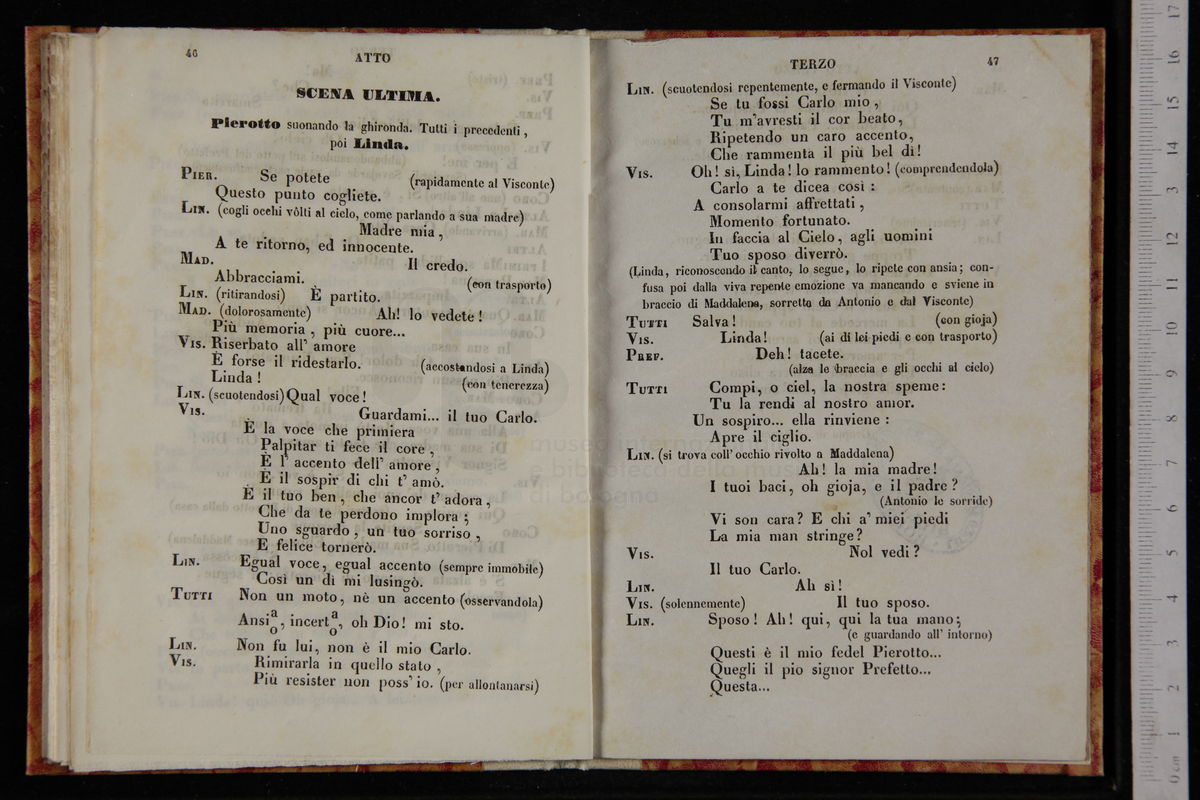 46
ATTO
SCENA ULTIMA.
Pierotto suonando la ghironda. Tutti i precedenti,
poi Linda.
PIER. Se potete (rapidamente al Visconte)
Questo punto cogliete.
LIN. (cogli occhi vôlti al cielo, come parlando a sua madre)
Madre mia,
A te ritorno, ed innocente.
MAD. Il credo.
Abbracciami. (con trasporto)
LIN. (ritirandosi) È partito.
MAD. (dolorosamente) Ah! lo vedete!
Più memoria, più cuore...
VIS. Riserbato all' amore
È forse il ridestarlo. (accostandosi a Linda)
Linda! (con tenerezza)
LIN. (scuotendosi) Qual voce!
VIS. Guardami... il tuo Carlo.
È la voce che primiera
Palpitar ti fece il core,
È l' accento dell' amore,
È il sospir di chi t' amò.
È il tuo ben, che ancor t' adora,
Che da te perdono implora;
Uno sguardo, un tuo sorriso,
E felice tornerò.
LIN. Egual voce, egual accento (sempre immobile)
Così un dì mi lusingò.
TUTTI Non un moto, nè un accento (osservandola)
Ansi a/o, incert a/o, oh Dio! mi sto.
LIN. Non fu lui, non è il mio Carlo.
VIS. Rimirarla in quello stato,
Più resister non poss' io. (per allontanarsi)
TERZO
47
LIN. (scuotendosi repentemente, e fermando il Visconte)
Se tu fossi Carlo mio,
Tu m'avresti il cor beato,
Ripetendo un caro accento,
Che rammenta il più bel dì!
VIS. Oh! sì, Linda! lo rammento! (comprendendola)
Carlo a te dicea così:
A consolarmi affrettati,
Momento fortunato.
In faccia al Cielo, agli uomini
Tuo sposo diverrò.
(Linda, riconoscendo il canto, lo segue, lo ripete con ansia; con-
fusa poi dalla viva repente emozione va mancando e sviene in
braccio di Maddalena, sorretta da Antonio e dal Visconte)
TUTTI Salva! (con gioja)
VIS. Linda! (ai di lei piedi e con trasporto)
PREF. Deh! tacete.
(alza le braccia e gli occhi al cielo)
TUTTI Compi, o ciel, la nostra speme:
Tu la rendi al nostro amor.
Un sospiro... ella rinviene:
Apre il ciglio.
LIN. (si trova coll' occhio rivolto a Maddalena)
Ah! la mia madre!
I tuoi baci, oh gioja, e il padre?
(Antonio le sorride)
Vi son cara? E chi a' miei piedi
La mia man stringe?
VIS. Nol vedi?
Il tuo Carlo.
LIN. Ah sì!
VIS. (solennemente) Il tuo sposo.
LIN. Sposo! Ah! qui, qui la tua mano;
(e guardando all' intorno)
Questi è il mio fedel Pierotto...
Quegli il pio signor Prefetto...
Questa...